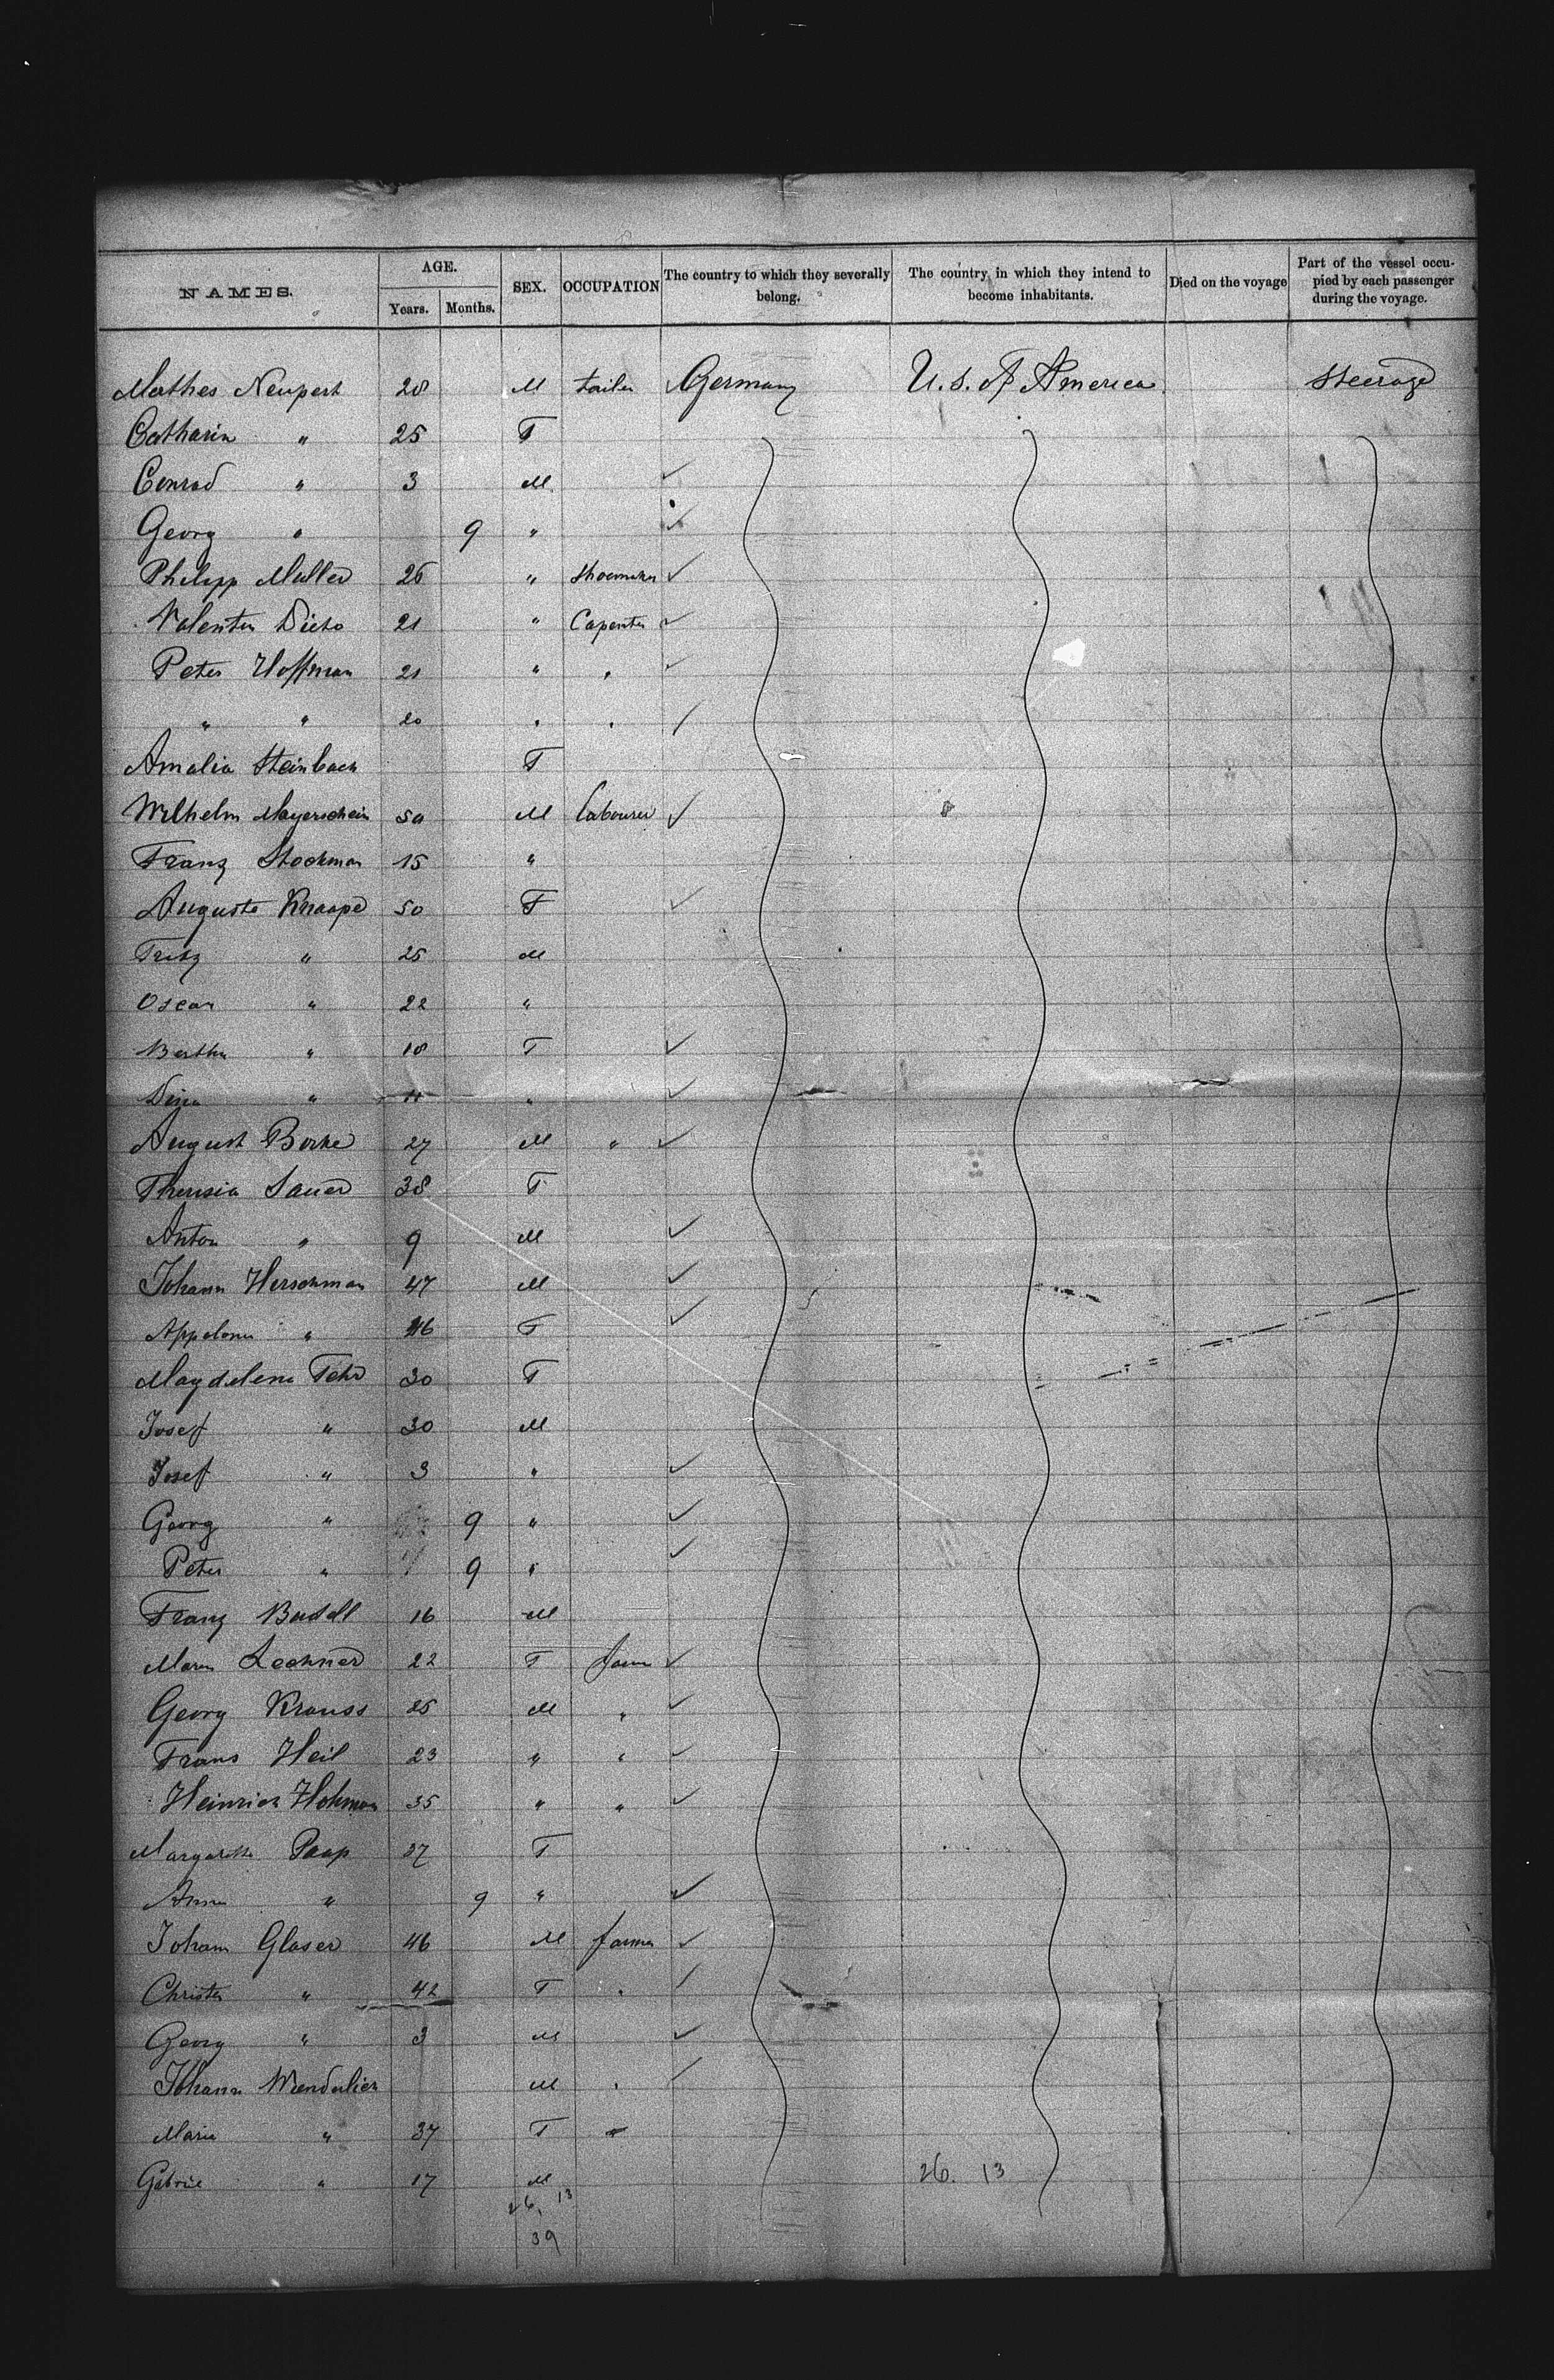 NAMES. AGE. Years. Months. SEX. OCCUPATION The country to which they severally belong. The country in which they intend to become inhabitants. Died on the voyage Part of the vessel occupied by each passenger during the voyage.
Mathes Neupert 28 M tailer Germany U.S. of America Steerage
Catharin " 25 F
Conrad " 3 M
Georg " 9 "
Philipp Muller 26 " Shoemaker
Valentin 21 " Capenter
Peter Hoffman 21 " "
" " 20 " "
Amalia Steinbach F
Wilhelm Mayerschein 50 M labourer
Franz Stockman 15 "
Auguste Knaape 50 F
Fritz " 25 M
Oscar " 22 "
Bertha " 18 F
" 11 "
August Borke 27 M "
Theresia Sauer 38 F
Anton " 9 M
Johann Herschman 47 M
Appolonia " 46 F
Magdalena Fehr 30 F
Josef " 30 M
Josef " 3 "
Georg " 9 "
Peter " 9 "
Franz 16 M
Maria Lechner 22 F farm
Georg Krauss 25 M "
Frans Heil 23 " "
Heinrich Hohman 35 " "
Margaretha Paap 37 F
Anna " 9 "
Johann Glaser 46 M farmer
Christin " 42 F "
Georg " 3 M
Johann M "
Maria " 37 F "
Gabriel " 17 M
26. 13
26. 13
39